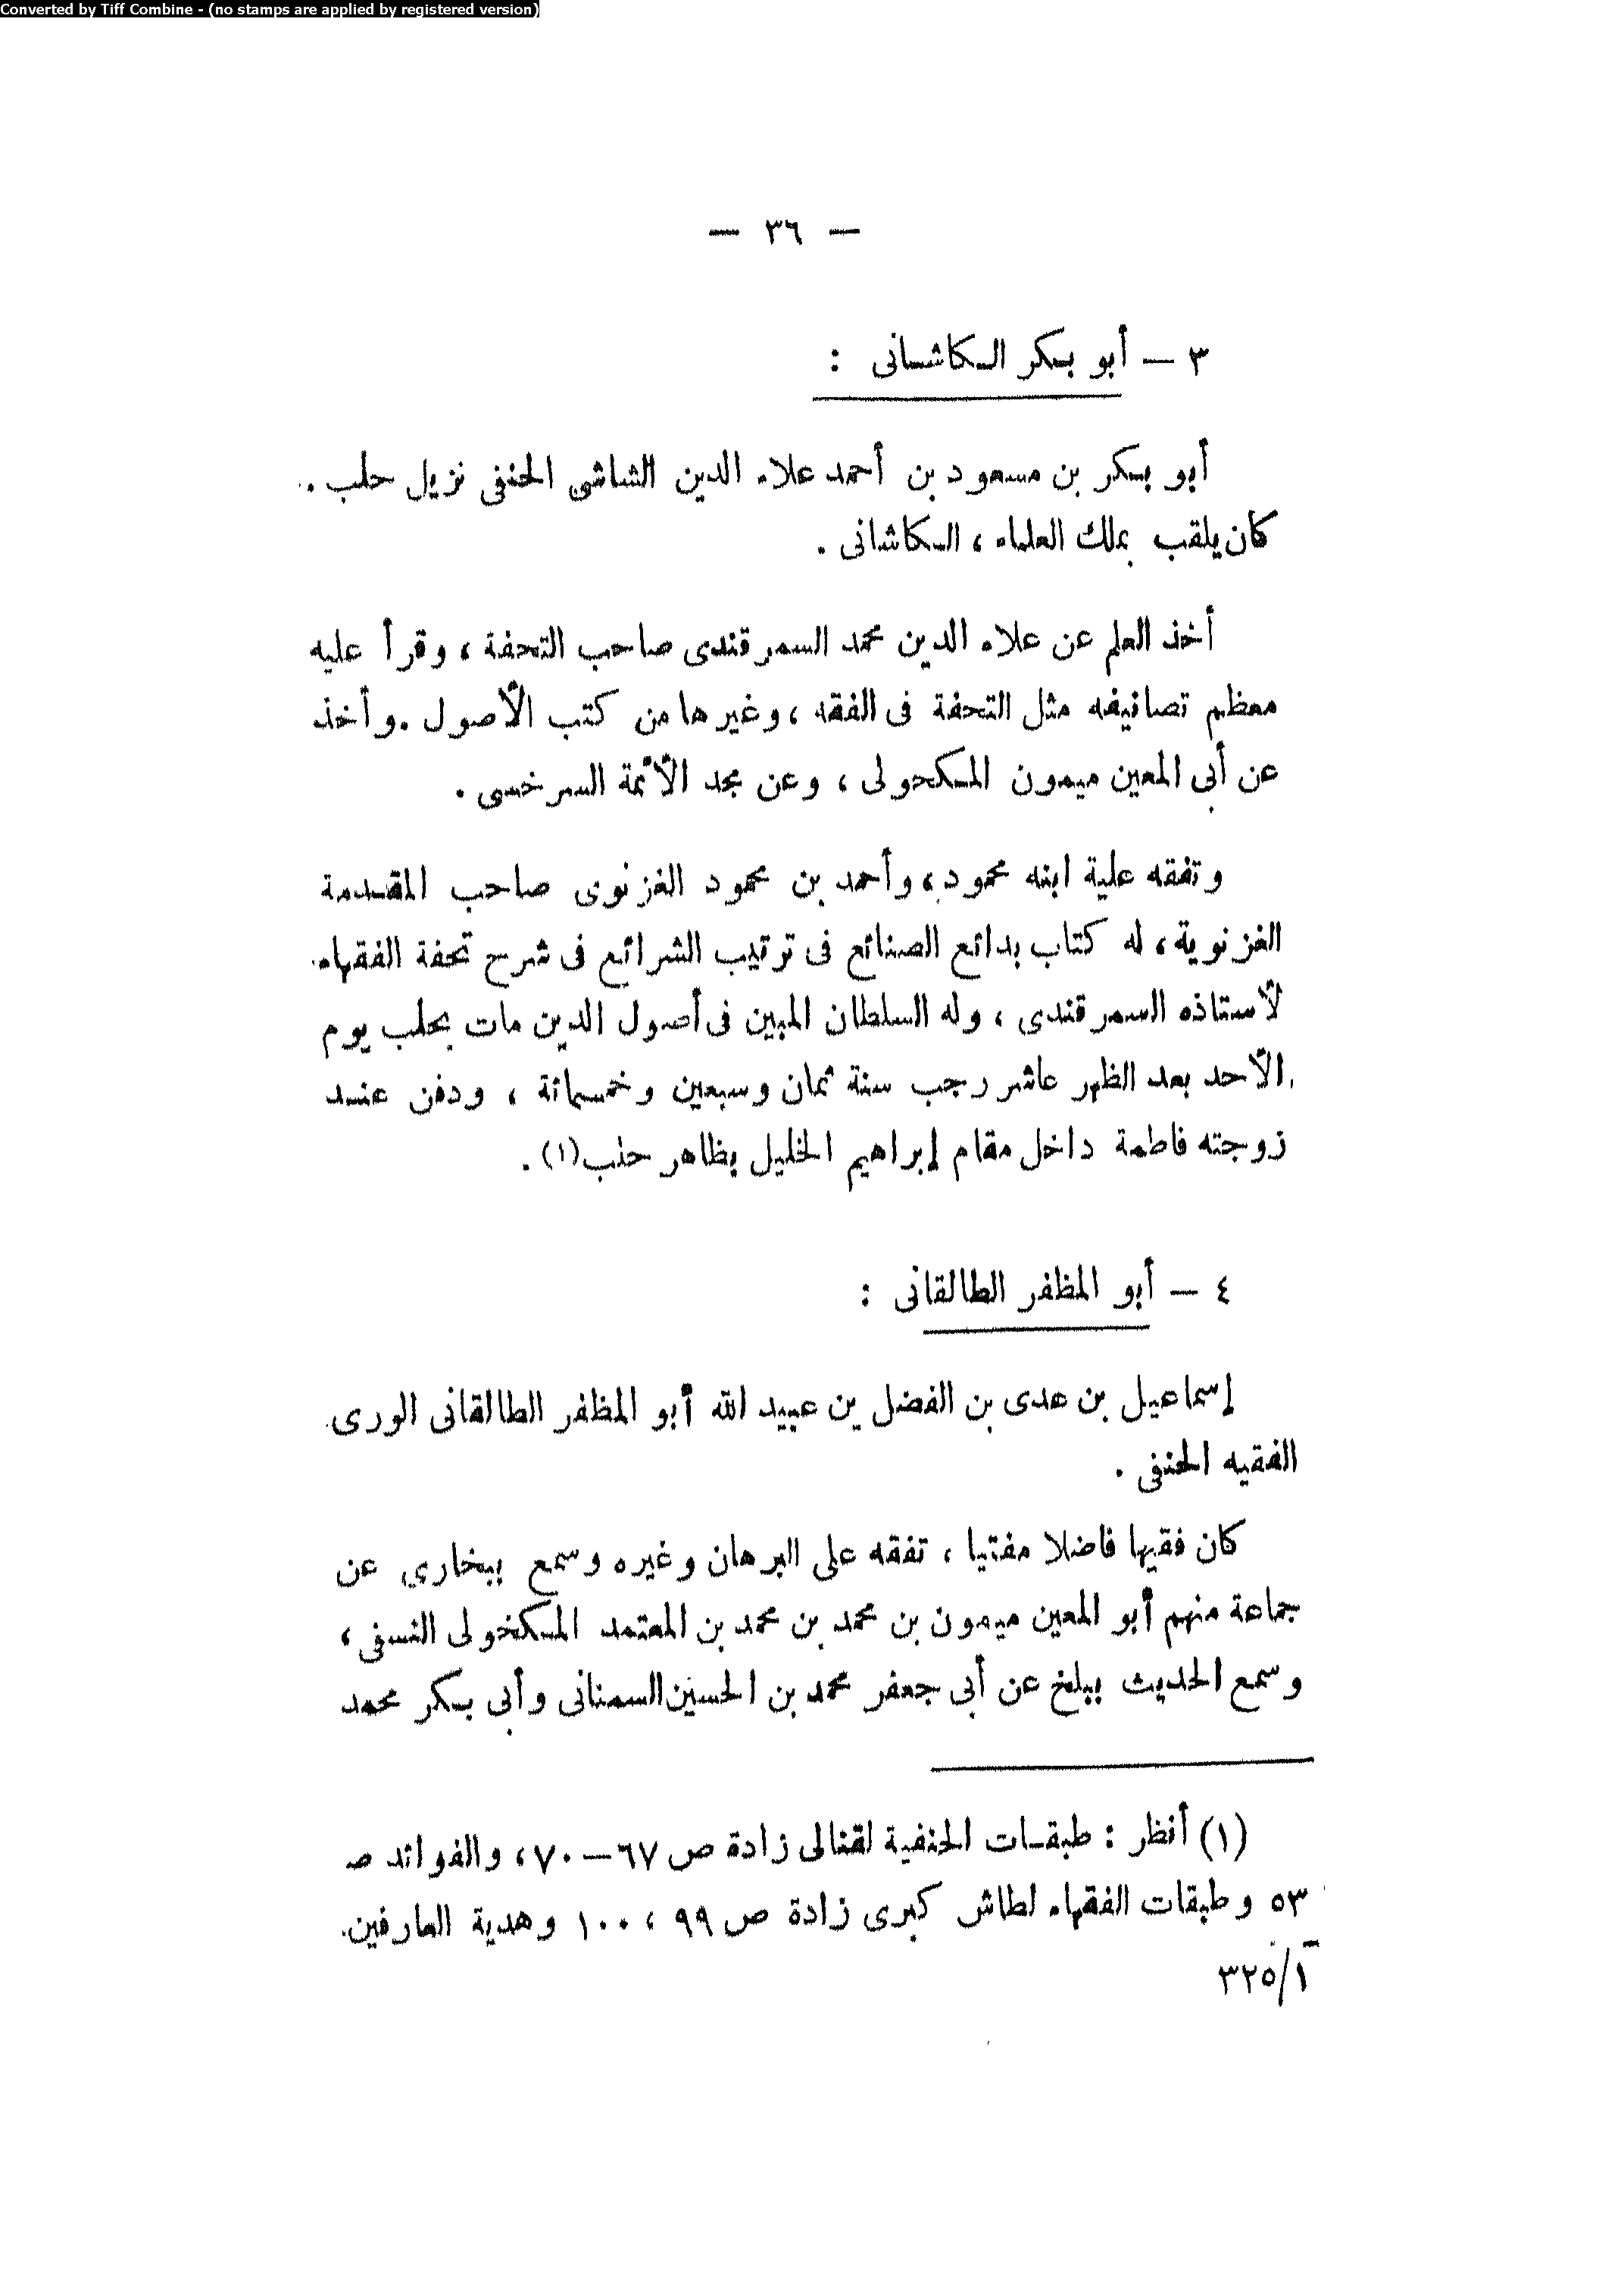 Converted by Tiff Combine - (no stamps are applied by registered version)
— ٣٦ —
٣ — أبو بكر الكاشانى :
أبو بكر بن مسعود بن أحمد علاء الدين الشاشى الحنفى نزيل حلب .
كان يلقب بملك العلماء ، الكاشانى .
أخذ العلم عن علاء الدين محمد السمرقندى صاحب التحفة ، وقرأ عليه
معظم تصانيفه مثل التحفة فى الفقه ، وغيرها من كتب الأصول . وأخذ
عن أبى المعين ميمون المكحولى ، وعن مجد الأئمة السرخسى .
وتفقه علية ابنه محمود ، وأحمد بن محمود الغزنوى صاحب المقدمة
الغزنوية ، له كتاب بدائع الصنائع فى ترتيب الشرائع فى شرح تحفة الفقهاء
لأستاذه السمرقندى ، وله السلطان المبين فى أصول الدين مات بحلب يوم
الأحد بعد الظهر عاشر رجب سنة ثمان وسبعين وخمسمائة ، ودفن عند
زوجته فاطمة داخل مقام إبراهيم الخليل بظاهر حلب(١) .
٤ — أبو المظفر الطالقانى :
إسماعيل بن عدى بن الفضل بن عبيد الله أبو المظفر الطالقانى الورى
الفقيه الحنفى .
كان فقيها فاضلا مفتيا ، تفقه على البرهان وغيره وسمع ببخارى عن
جماعة منهم أبو المعين ميمون بن محمد بن محمد بن المعتمد المكخولى النسفى ،
وسمع الحديث ببلخ عن أبى جعفر محمد بن الحسين السمنانى وأبى بكر محمد
(١) أنظر : طبقات الحنفية لقنالى زادة ص ٦٧—٧٠ ، والفوائد صـ
٥٣ وطبقات الفقهاء لطاش كبرى زادة ص ٩٩ ، ١٠٠ وهدية العارفين
٣٢٥/١